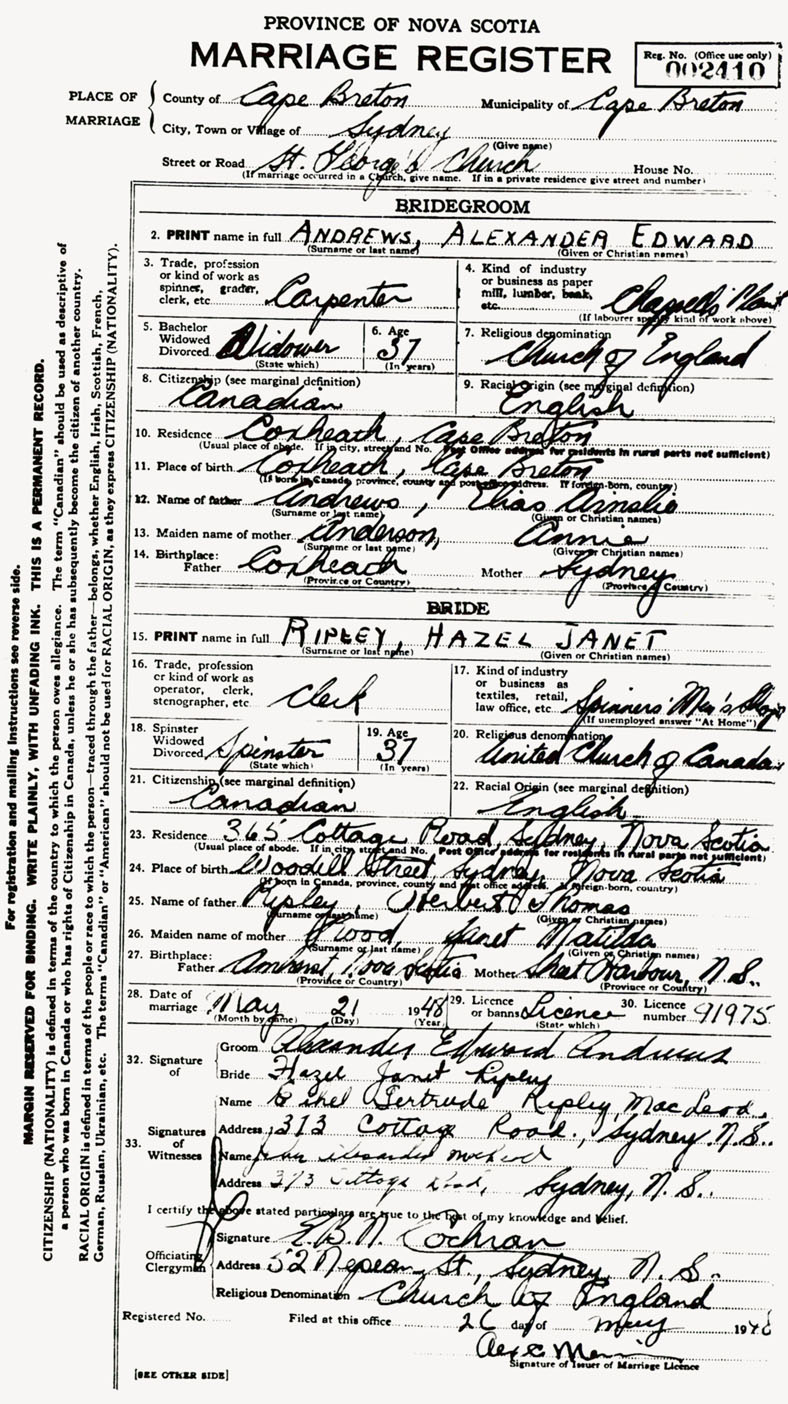 PROVINCE OF NOVA SCOTIA
MARRIAGE REGISTER
Reg. No. (Office use only)
002410
PLACE OF MARRIAGE
County of Cape Breton Municipality of Cape Breton
City, Town or Village of Sydney
(Give name)
Street or Road St. George's Church House No.
(If marriage occurred in a Church, give name. If in a private residence give street and number)
BRIDEGROOM
2. PRINT name in full ANDREWS, ALEXANDER EDWARD
(Surname or last name) (Given or Christian names)
3. Trade, profession or kind of work as spinner, grader, clerk, etc Carpenter
4. Kind of industry or business as paper mill, lumber, bank, etc. Chappell's Plant
(If labourer specify kind of work above)
5. Bachelor Widowed Divorced Widower
(State which)
6. Age 37
(In years)
7. Religious denomination Church of England
8. Citizenship (see marginal definition)
Canadian
9. Racial Origin (see marginal definition)
English
10. Residence Coxheath, Cape Breton
(Usual place of abode. If in city, street and No. Post Office address for residents in rural parts not sufficient)
11. Place of birth Coxheath, Cape Breton
(If born in Canada, province, county and post office address. If foreign-born, country)
12. Name of father Andrews, Elias Ainslie
(Surname or last name) (Given or Christian names)
13. Maiden name of mother Anderson, Annie
(Surname or last name) (Given or Christian names)
14. Birthplace: Father Coxheath Mother Sydney
(Province or Country) (Province or Country)
BRIDE
15. PRINT name in full RIPLEY, HAZEL JANET
(Surname or last name) (Given or Christian names)
16. Trade, profession or kind of work as operator, clerk, stenographer, etc Clerk
17. Kind of industry or business as textiles, retail, law office, etc Spinners' Men's Shop
(If unemployed answer "At Home")
18. Spinster Widowed Divorced Spinster
(State which)
19. Age 37
(In years)
20. Religious denomination
United Church of Canada
21. Citizenship (see marginal definition)
Canadian
22. Racial Origin (see marginal definition)
English
23. Residence 365 Cottage Road, Sydney, Nova Scotia
(Usual place of abode. If in city, street and No. Post Office address for residents in rural parts not sufficient)
24. Place of birth Woodill Street, Sydney, Nova Scotia
(If born in Canada, province, county and post office address. If foreign-born, country)
25. Name of father Ripley, Herbert Thomas
(Surname or last name) (Given or Christian names)
26. Maiden name of mother Wood, Janet Matilda
(Surname or last name) (Given or Christian names)
27. Birthplace: Father Amherst, Nova Scotia Mother Sheet Harbour, N.S.
(Province or Country) (Province or Country)
28. Date of marriage May 21 1948
(Month by name) (Day) (Year)
29. Licence or banns Licence
(State which)
30. Licence number 91975
32. Signature of
Groom Alexander Edward Andrews
Bride Hazel Janet Ripley
33. Signatures of Witnesses
Name Ethel Gertrude Ripley MacLeod.
Address 373 Cottage Road, Sydney N.S.
Name
Address 373 Cottage Road, Sydney, N.S.
I certify the above stated particulars are true to the best of my knowledge and belief.
Officiating Clergyman
Signature E.B.N. Cochran
Address 52 Nepean St., Sydney, N.S.
Religious Denomination Church of England
Registered No. Filed at this office 26 day of May 1948
Signature of Issuer of Marriage Licence
[SEE OTHER SIDE]
For registration and mailing instructions see reverse side.
MARGIN RESERVED FOR BINDING. WRITE PLAINLY, WITH UNFADING INK. THIS IS A PERMANENT RECORD.
CITIZENSHIP (NATIONALITY) is defined in terms of the country to which the person owes allegiance. The term "Canadian" should be used as descriptive of
a person who was born in Canada or who has rights of Citizenship in Canada, unless he or she has subsequently become the citizen of another country.
RACIAL ORIGIN is defined in terms of the people or race to which the person—traced through the father—belongs, whether English, Irish, Scottish, French,
German, Russian, Ukrainian, etc. The terms "Canadian" or "American" should not be used for RACIAL ORIGIN, as they express CITIZENSHIP (NATIONALITY).